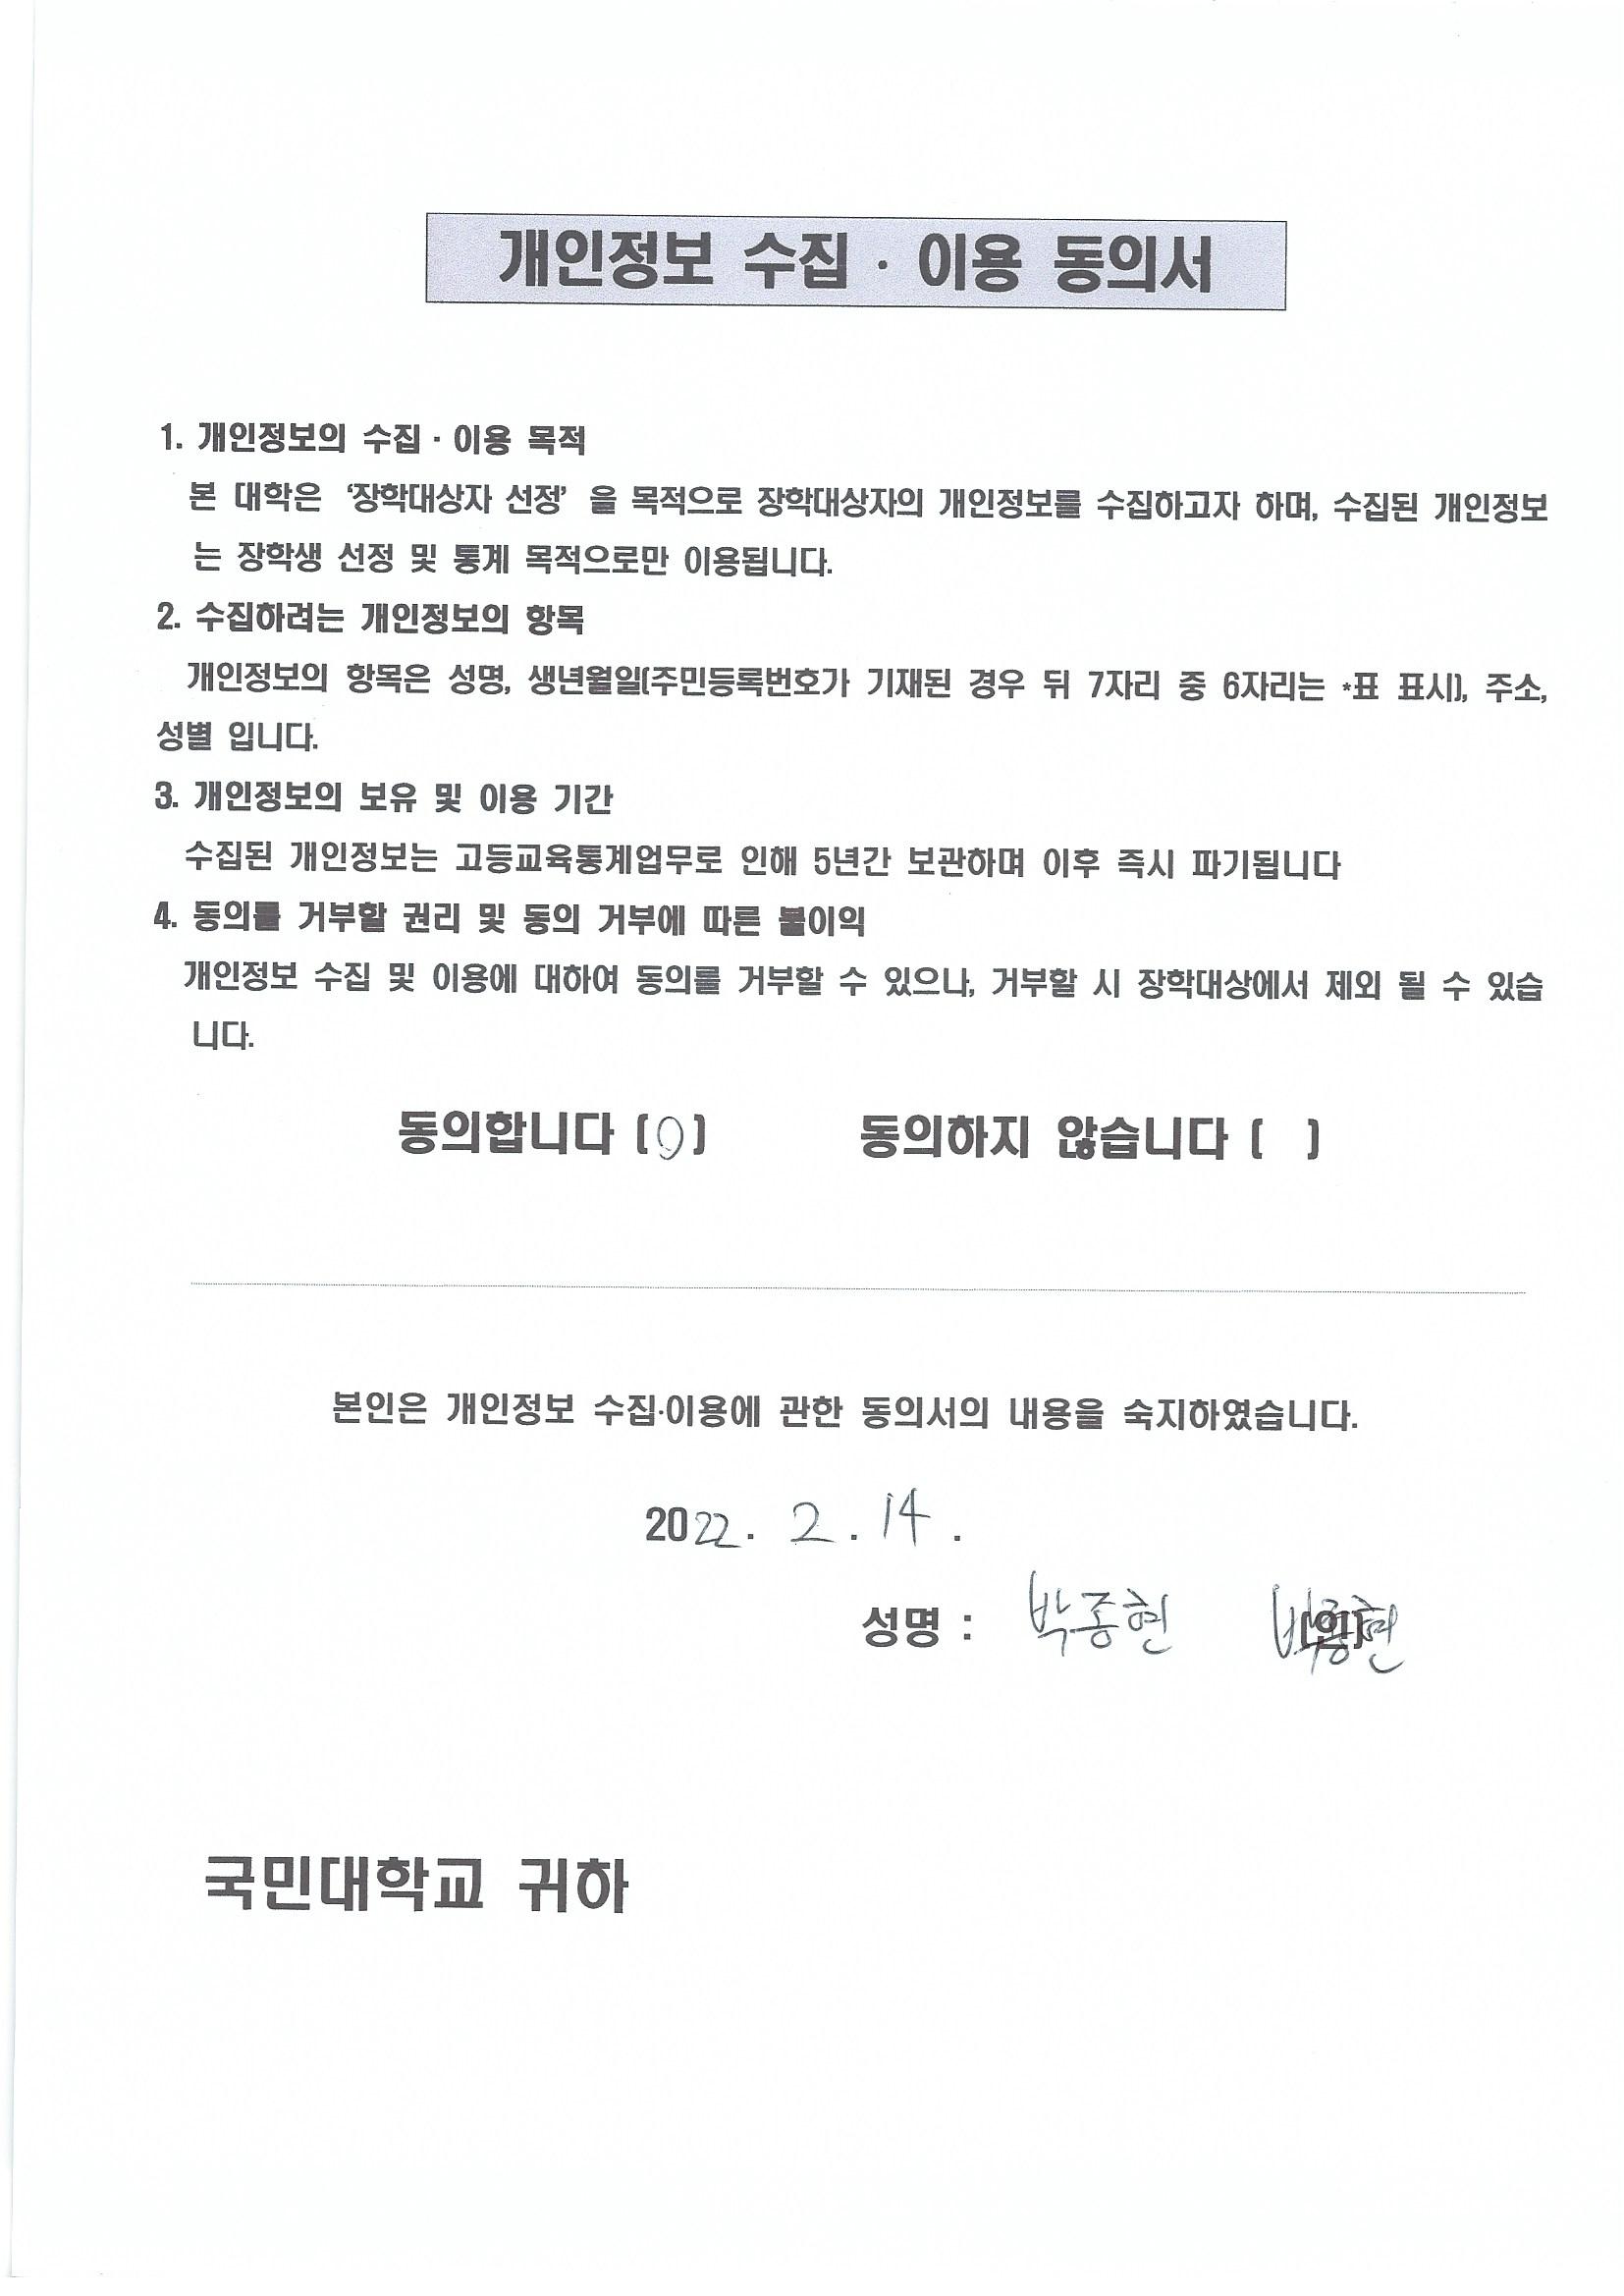 개인정보 수집 · 이용 동의서
1. 개인정보의 수집 · 이용 목적
본 대학은 ‘장학대상자 선정’ 을 목적으로 장학대상자의 개인정보를 수집하고자 하며, 수집된 개인정보
는 장학생 선정 및 통계 목적으로만 이용됩니다.
2. 수집하려는 개인정보의 항목
개인정보의 항목은 성명, 생년월일(주민등록번호가 기재된 경우 뒤 7자리 중 6자리는 *표 표시), 주소,
성별 입니다.
3. 개인정보의 보유 및 이용 기간
수집된 개인정보는 고등교육통계업무로 인해 5년간 보관하며 이후 즉시 파기됩니다
4. 동의를 거부할 권리 및 동의 거부에 따른 불이익
개인정보 수집 및 이용에 대하여 동의를 거부할 수 있으나, 거부할 시 장학대상에서 제외 될 수 있습
니다.
동의합니다 (O) 동의하지 않습니다 ( )
본인은 개인정보 수집·이용에 관한 동의서의 내용을 숙지하였습니다.
2022. 2. 14.
성명 : 박종현 박종현 (인)
국민대학교 귀하